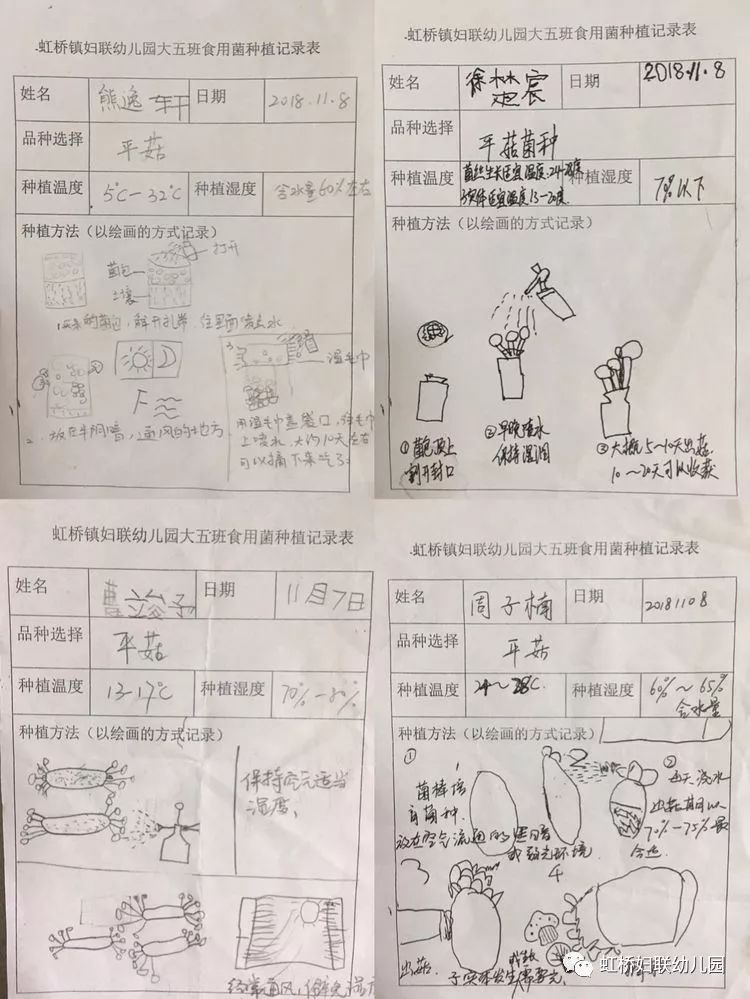 虹桥镇妇联幼儿园大五班食用菌种植记录表
姓名 熊逸轩 日期 2018.11.8
品种选择 平菇
种植温度 5℃—32℃ 种植湿度 含水量60%左右
种植方法（以绘画的方式记录）
打开
菌包
土壤
1.买来的菌包，解开扎带，往里面
水
湿毛巾
2.放在半阴暗，通风的地方
3
用湿毛巾盖袋口，往毛巾
上喷水，大约10天左右
可以摘下来吃了
虹桥镇妇联幼儿园大五班食用菌种植记录表
姓名 徐林宸 日期 2018.11.8
品种选择 平菇菌种
种植温度 菌丝生长适宜温度:24-28度
子实体适宜温度13-20度 种植湿度 70%以下
种植方法（以绘画的方式记录）
①菌包顶上
割开封口
②早晚喷水
保持湿润
③大概5~10天出菇
10~20天可以收获
虹桥镇妇联幼儿园大五班食用菌种植记录表
姓名 曹竣 日期 11月7日
品种选择 平菇
种植温度 13-17℃ 种植湿度 70%-80%
种植方法（以绘画的方式记录）
保持空气适当
湿度、
经常通风，保持
虹桥镇妇联幼儿园大五班食用菌种植记录表
姓名 周子楠 日期 20181108
品种选择 平菇
种植温度 24~28℃ 种植湿度 60%~65%
含水量
种植方法（以绘画的方式记录）
①
菌棒培
育菌种.
放在空气流通的黑暗
或弱光环境
2
②每天浇水
出菇期以
70%-75%最
合适
3
出菇.
4
子实体发生需要光.
虹桥妇联幼儿园